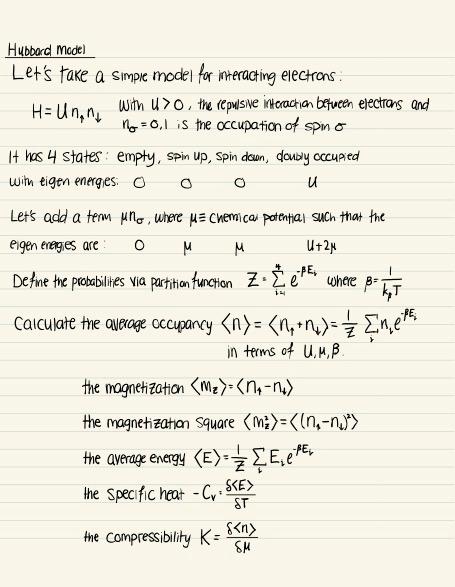 Hubbard Model
Let's take a simple model for interacting electrons:
H = U n↑n↓ With U > 0, the repulsive interaction between electrons and
nσ = 0,1 is the occupation of spin σ
It has 4 states: empty, spin up, spin down, doubly occupied
with eigen energies: 0 0 0 U
Let's add a term μnσ, where μ ≡ chemical potential such that the
eigen energies are: 0 μ μ U+2μ
Define the probabilities via partition function Z = Σ_{i=1}^{4} e^{-βE_i} where β = 1/(k_βT)
Calculate the average occupancy ⟨n⟩ = ⟨n↑+n↓⟩ = 1/Z Σ_i n_i e^{-βE_i}
in terms of U, μ, β.
the magnetization ⟨m_z⟩ = ⟨n↑-n↓⟩
the magnetization square ⟨m_z²⟩ = ⟨(n↑-n↓)²⟩
the average energy ⟨E⟩ = 1/Z Σ_i E_i e^{-βE_i}
the specific heat - C_v = δ⟨E⟩/δT
the compressibility K = δ⟨n⟩/δμ